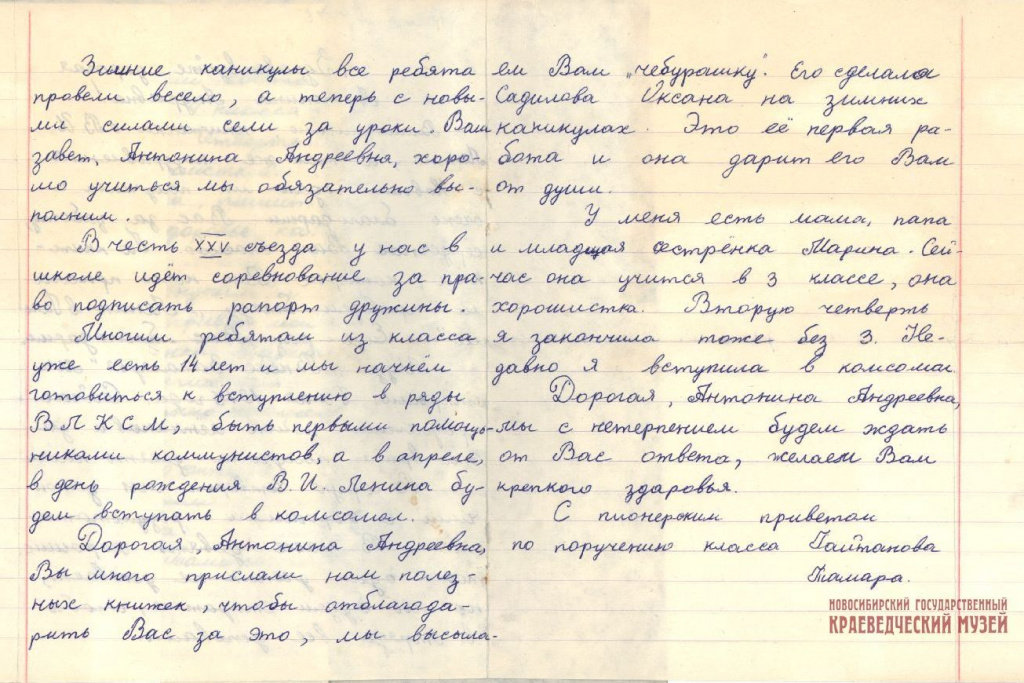 Зимние каникулы все ребята
провели весело, а теперь с новы-
ми силами сели за уроки. Ваш
завет, Антонина Андреевна, хоро-
шо учиться мы обязательно вы-
полним.
В честь XXV съезда у нас в
школе идёт соревнование за пра-
во подписать рапорт дружины.
Многим ребятам из класса
уже есть 14 лет и мы начнём
готовиться к вступлению в ряды
ВЛКСМ, быть первыми помощь-
никами коммунистов, а в апреле,
в день рождения В.И. Ленина бу-
дем вступать в комсомол.
Дорогая, Антонина Андреевна,
Вы много прислали нам полез-
ных книжек, чтобы отблагода-
рить Вас за это, мы высыла-
ем Вам „чебурашку". Его сделала
Садилова Оксана на зимних
каникулах. Это её первая ра-
бота и она дарит его Вам
от души.
У меня есть мама, папа
и младшая сестрёнка Марина. Сей-
час она учится в 3 классе, она
хорошистка. Вторую четверть
я закончила тоже без 3. Не-
давно я вступила в комсомол.
Дорогая, Антонина Андреевна,
мы с нетерпением будем ждать
от Вас ответа, желаем Вам
крепкого здоровья.
С пионерским приветом
по поручению класса Гайтанова
Тамара.
НОВОСИБИРСКИЙ ГОСУДАРСТВЕННЫЙ
КРАЕВЕДЧЕСКИЙ МУЗЕЙ